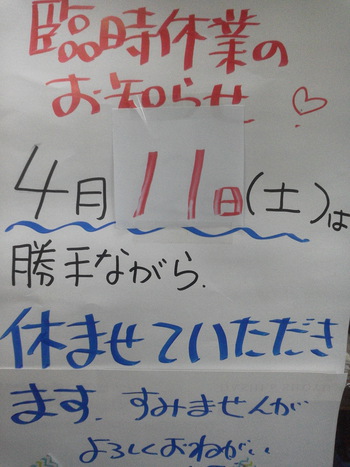 臨時休業の
お知らせ
4月11日(土)は
勝手ながら.
休ませていただき
ます. すみませんが
よろしくおねがい